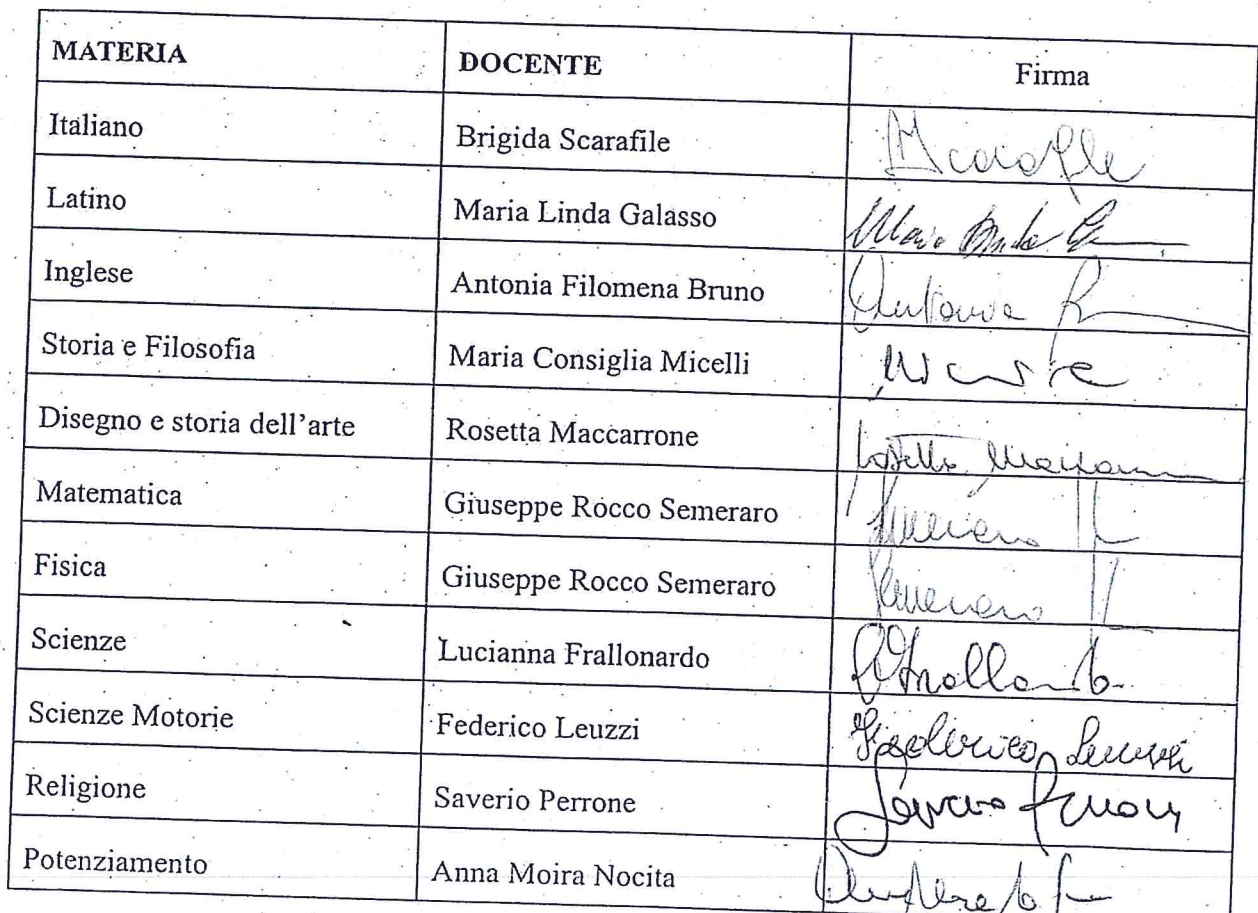 MATERIA DOCENTE Firma
Italiano Brigida Scarafile
Latino Maria Linda Galasso Maria Linda
Inglese Antonia Filomena Bruno Antonia
Storia e Filosofia Maria Consiglia Micelli
Disegno e storia dell'arte Rosetta Maccarrone Rosetta
Matematica Giuseppe Rocco Semeraro Semeraro
Fisica Giuseppe Rocco Semeraro Semeraro
Scienze Lucianna Frallonardo
Scienze Motorie Federico Leuzzi Federico Leuzzi
Religione Saverio Perrone Saverio
Potenziamento Anna Moira Nocita